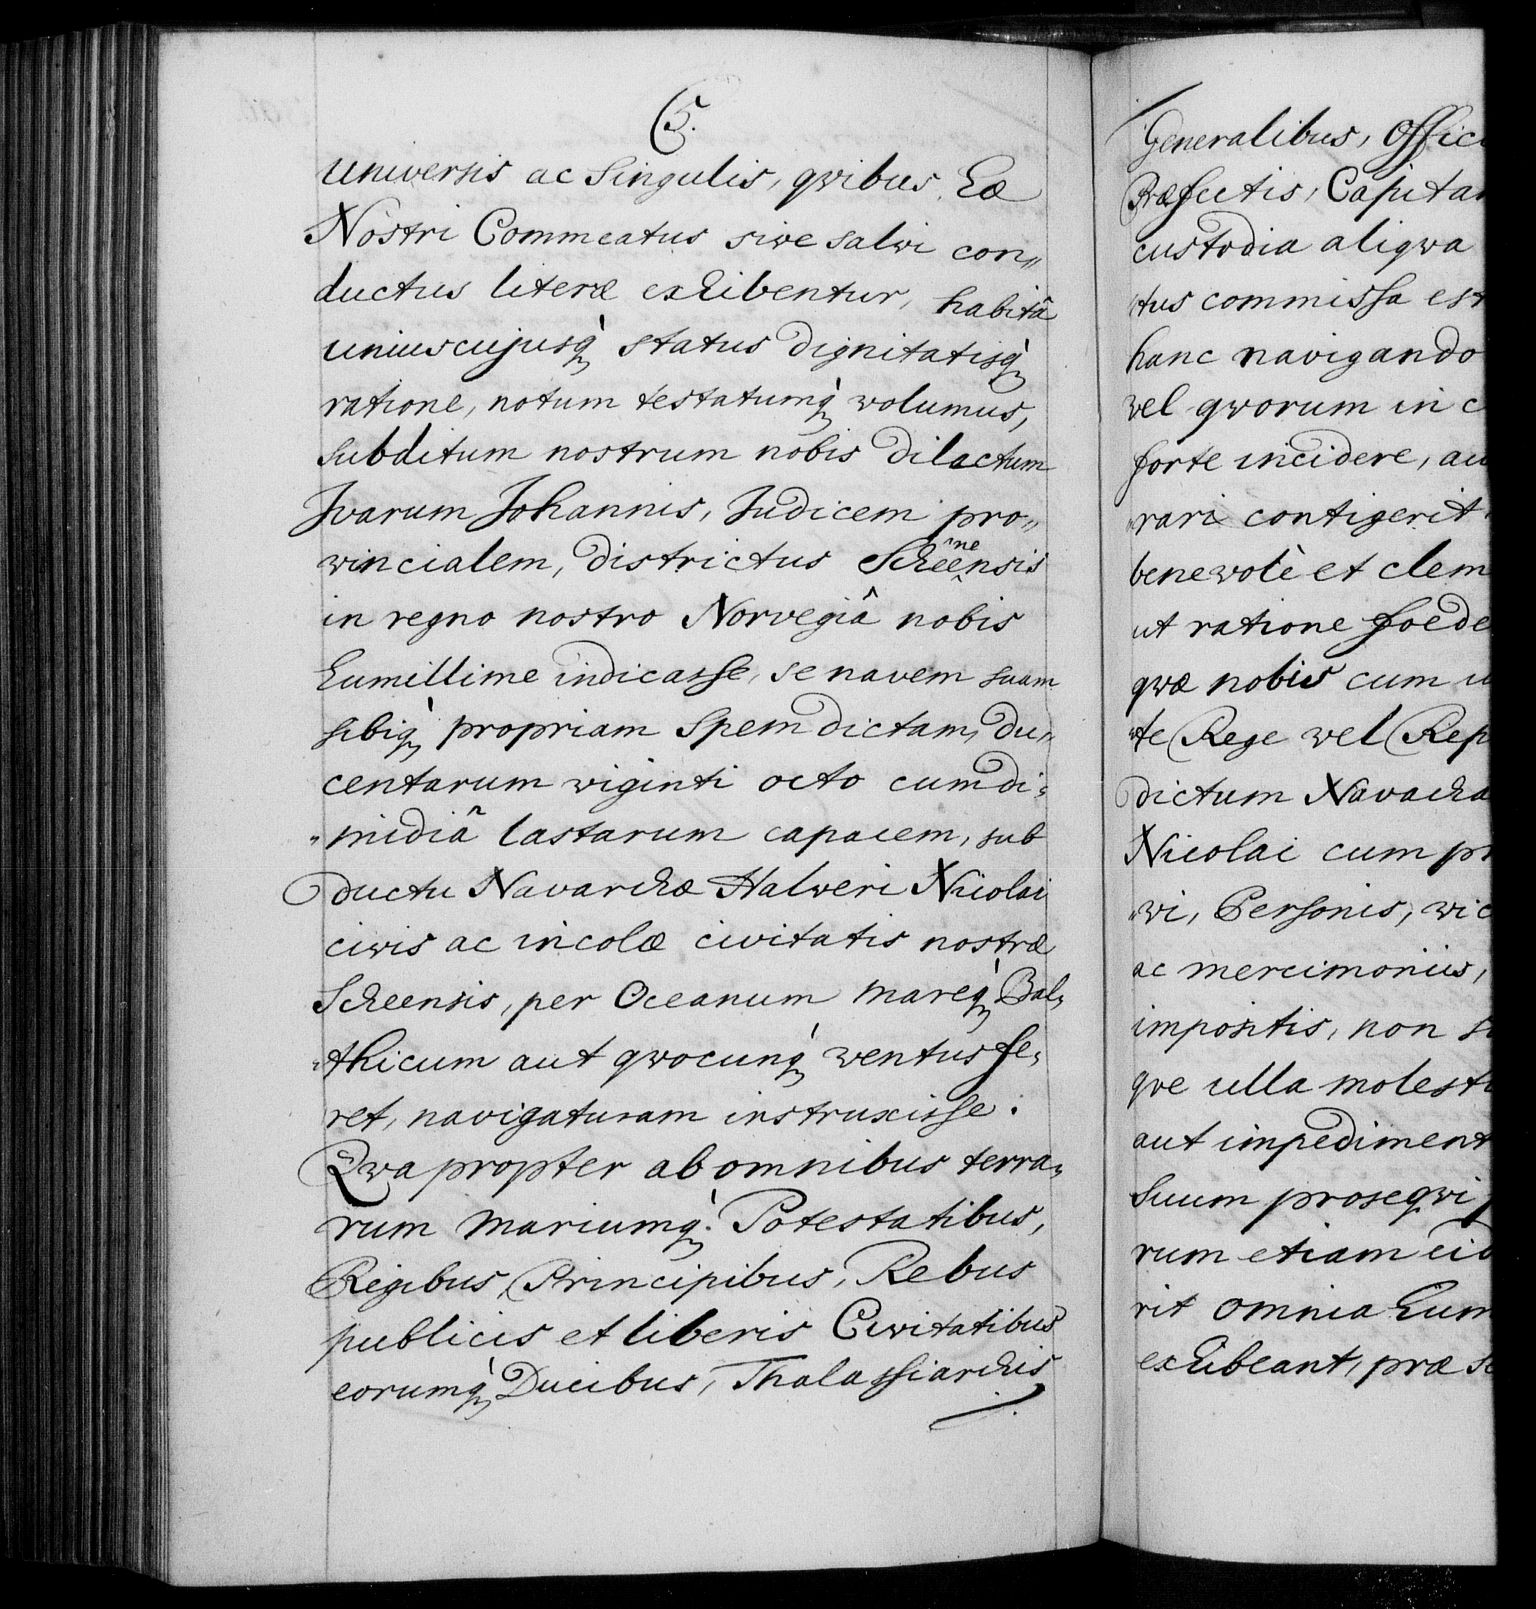 C5.
universis ac singulis, qvibus Hæ
Nostri Commeatus sive salvi con„
ductus literæ exhibentur, habitâ
uniuscujusq̀ status dignitatisq̀
ratione, notum testatumq̀ volumus,
subditum nostrum nobis dilectum
Ivarum Johannis, Judicem pro„
vincialem, districtus Scheênensis
in regno nostro Norvegiâ nobis
humillime indicasse, se navem suam
sibiq̀ propriam Spem dictam, du„
centarum viginti octo cum di„
„midiâ lastarum capacem, sub
ductu Navarchæ Halveri Nicolai
civis ac incolæ civitatis nostræ
Scheensis, per Oceanum mareq̀ Bal„
„thicum aut qvocunq̀ ventus fe„
ret, navigaturam instruxisse.
Qva propter ab omnibus terra„
rum mariumq̀ Potestatibus,
Regibus, Principibus, Rebus
publicis et liberis Civitatibus
eorumq̀ Ducibus, Thalassiarchis
Generalibus, Offici
Præfectis, Capitan
custodia aliqva
tus commissa est
hanc navigando
vel qvorum in c
forte incidere, au
rari contigerit
benevolè et clem
ut ratione foede
qvæ nobis cum
te Rege vel Rep
dictum Navarcha
Nicolai cum pr
vi, Personis, vic
ac mercimoniis,
impositis, non si
qve ulla molesti
aut impediment
suum proseqvi
rum etiam eid
rit omnia hum
exhibeant, præ se